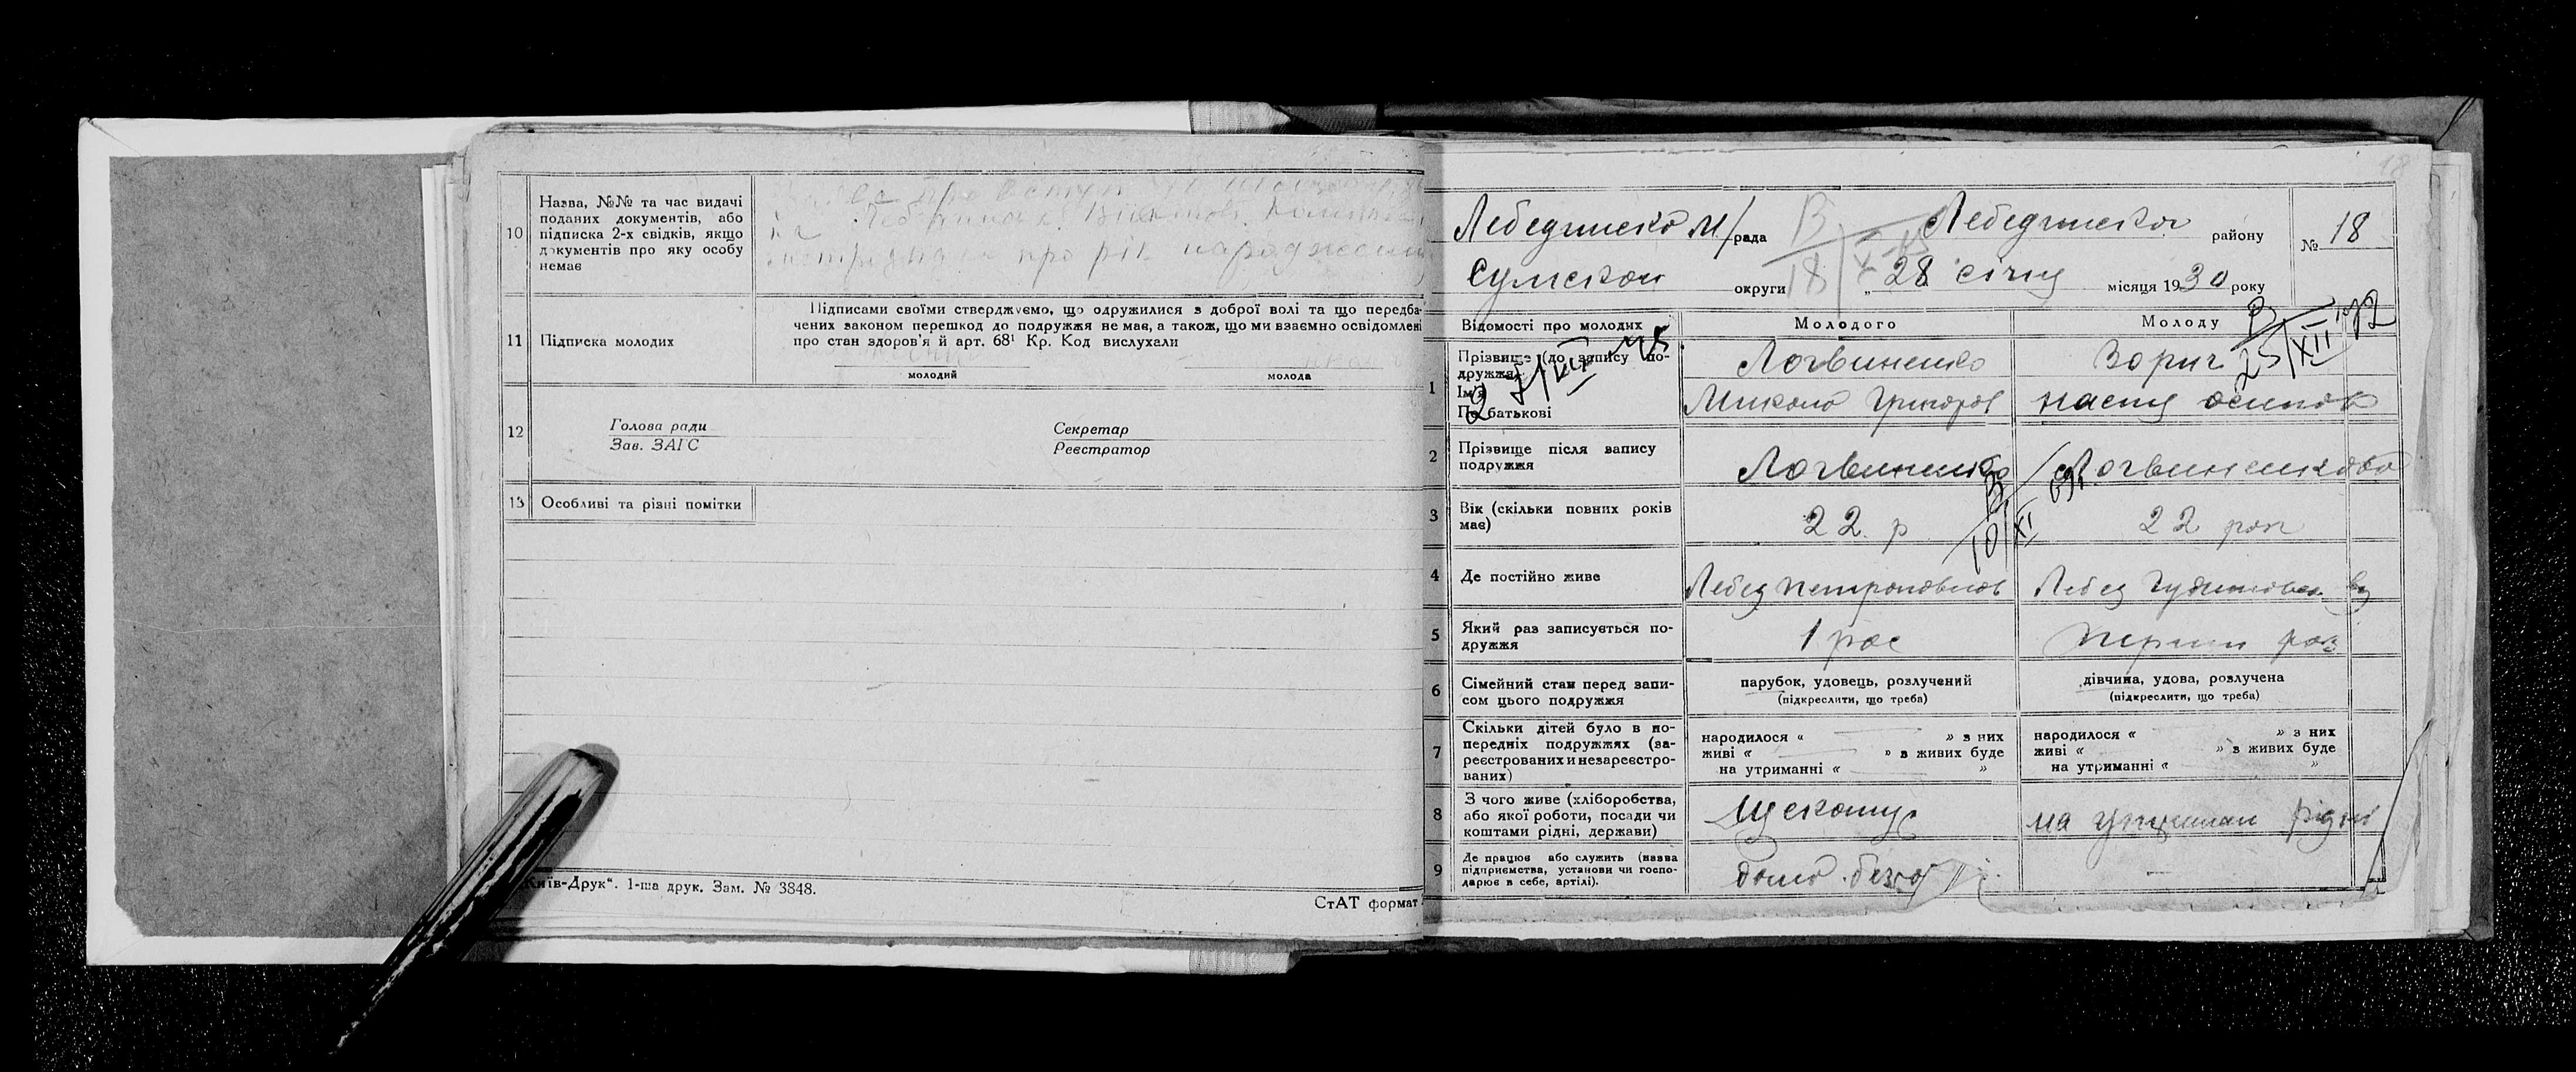 10
Назва, №№ та час видачі
поданих документів, або
підписка 2-х свідків, якщо
документів про яку особу
немає
про
про рік народження
11
Підписка молодих
Підписами своїми стверджуємо, що одружилися з доброї волі та що передба-
чених законом перешкод до подружжя не має, а також, що ми взаємно освідомлені
про стан здоров'я й арт. 68¹ Кр. Код вислухали
молодий
молода
12
Голова ради
Зав. ЗАГС
Секретар
Реєстратор
13
Особливі та різні помітки
Київ-Друк“. 1-ша друк. Зам. № 3848.
СтАТ формат
18
Лебединско м/рада
Лебединского району
№ 18
Сумской округи
„28 січня місяця 1930 року
Відомості про молодих
Молодого
Молоду
1
Прізвище (до запису по-
дружжя)
Ім'я
По батькові
Логвиненко
Микола Григоров
Зорич
Настя Осипов
25/XII
2
Прізвище після запису
подружжя
Логвиненко
Логвиненкова
10/XI
3
Вік (скільки повних років
має)
22 р
22 рок
4
Де постійно живе
Лебед
Лебед
5
Який раз записується по-
дружжя
1 рас
перши раз
6
Сімейний стан перед запи-
сом цього подружжя
парубок, удовець, розлучений
(підкреслити, що треба)
дівчина, удова, розлучена
(підкреслити, що треба)
7
Скільки дітей було в по-
передніх подружжях (за-
реєстрованих и незареєстро-
ваних)
народилося « » з них
живі « » з живих буде
на утриманні « »
народилося « » з них
живі « » з живих буде
на утриманні « »
8
З чого живе (хліборобства,
або якої роботи, посади чи
коштами рідні, держави)
на рідні
9
Де працює або служить (назва
підприємства, установи чи госпо-
дарює в себе, артілі).